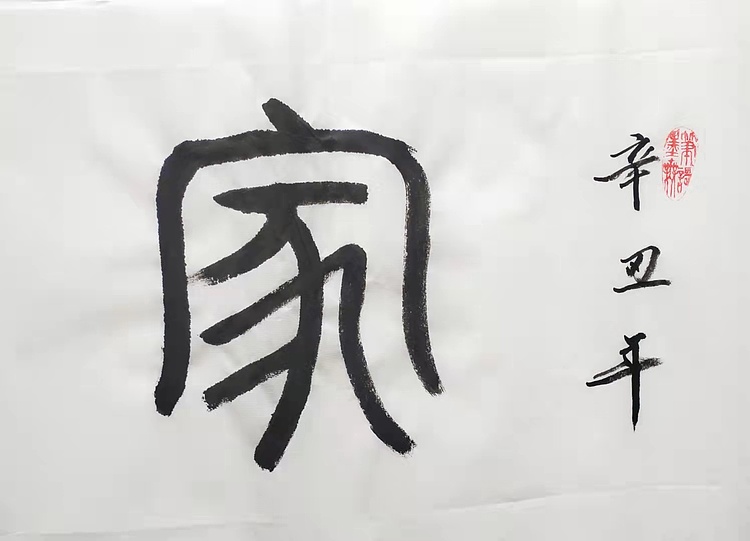 辛丑年
家